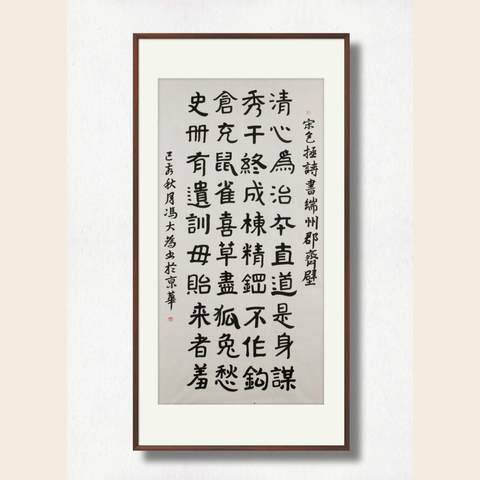 宋包拯詩書端州郡齊壁
清心為治本直道是身謀
秀干終成棟精鋼不作鈎
倉充鼠雀喜草盡狐兔愁
史册有遺訓毋貽來者羞
己亥秋月馮大為書於京華